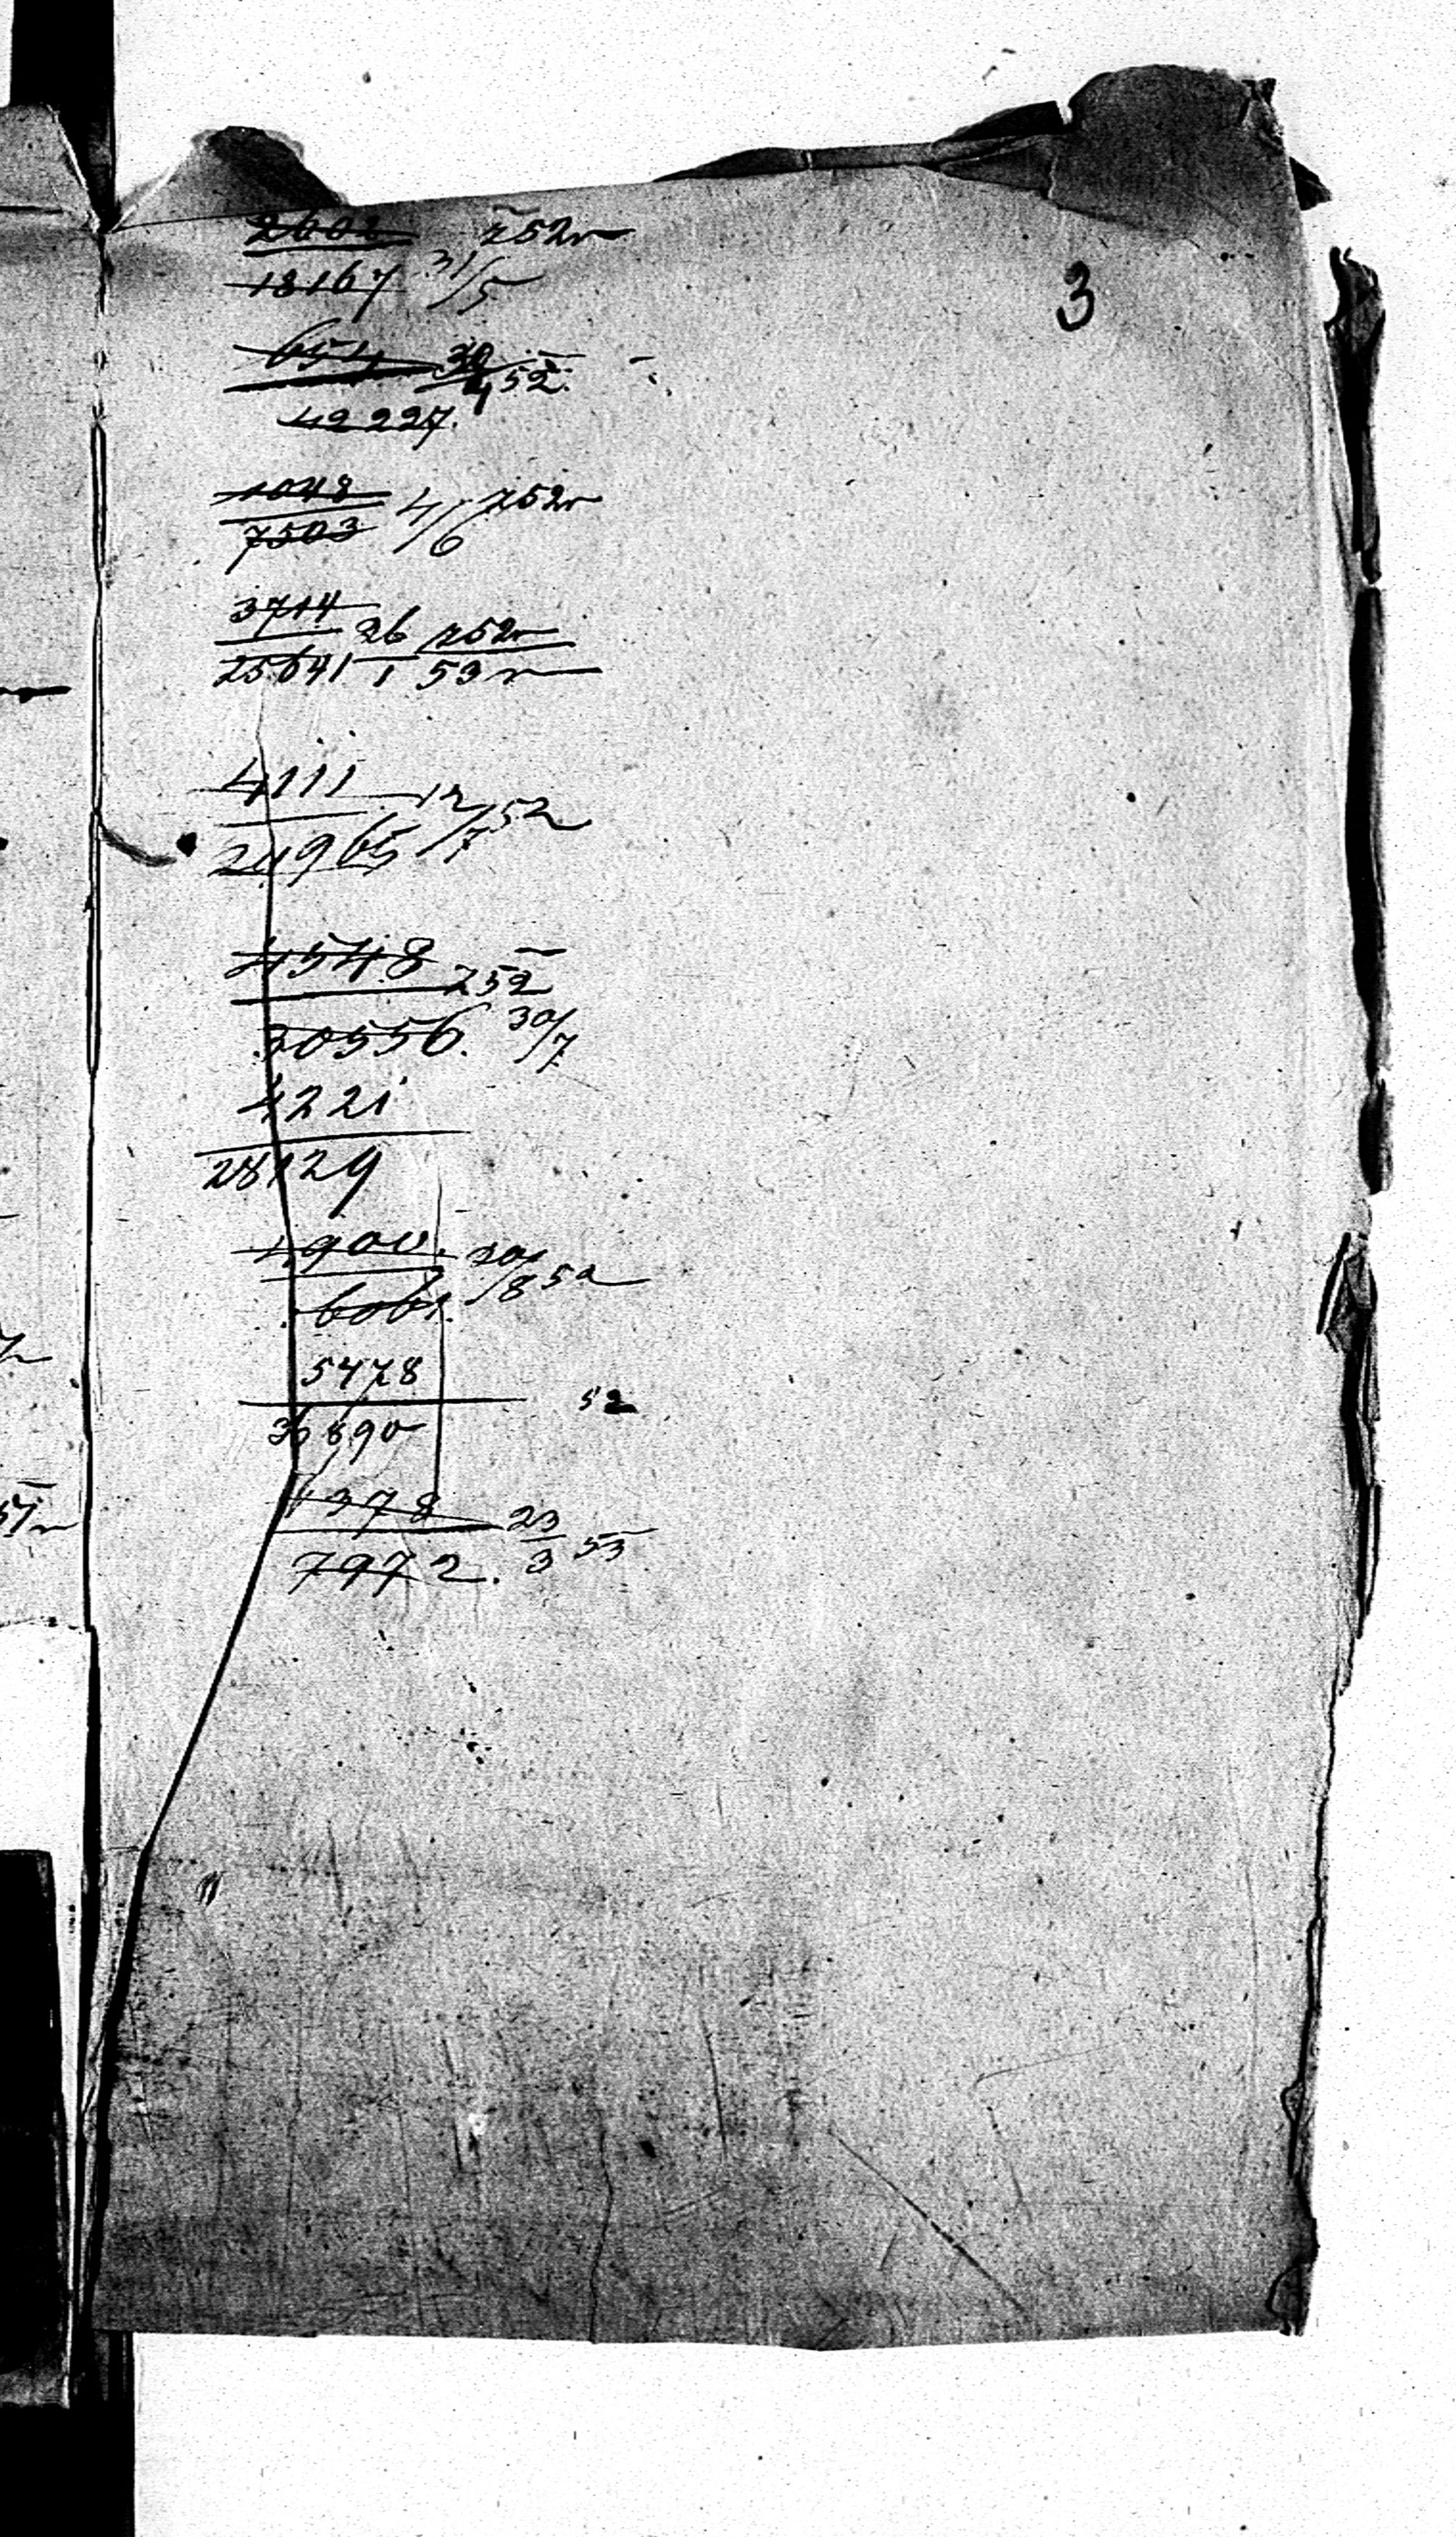 3
2602 752г
18167 31/5
654 30/4 52
42227.
1048
7503 4/6 752г
3714
25641 26/1 752г
53г
4111
24965 12/7 52
4548 752
30556. 30/7
4221
28129
1900. 20/8 52
6061.
5478
36890 52
1378 23/3 53
7972.